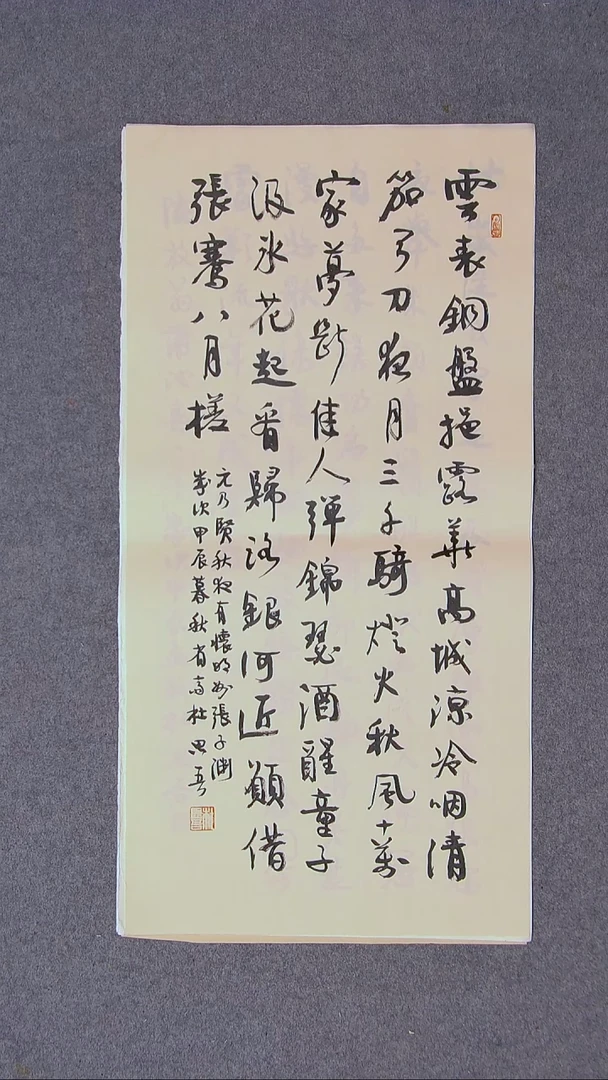 雲表銅盤挹露華高城涼冷咽清
笳弓刀夜月三千騎燈火秋風十萬
家夢斷佳人彈錦瑟酒醒童子
汲冰花起看歸路銀河近願借
張騫八月槎
元乃賢秋夜有懷明州張子淵
歲次甲辰暮秋省高杜思吾